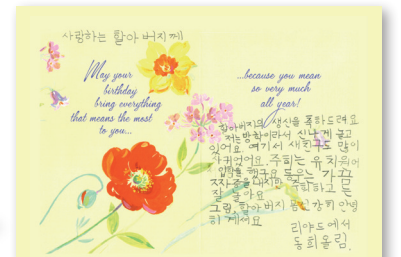 사랑하는 할아버지께
May your
birthday
bring everything
that means the most
to you...
...because you mean
so very much
all year!
할아버지의 생신을 축하드려요
저는 방학이라서 신나게 놀고
있어요 여기서 새친구도 많이
사귀었어요. 주희는 유치원에
입학을 했구요 동운는 가끔
주희하고는
잘 놀아요
그럼, 할아버지 몸 건강히 안녕
히 계세요
리야드에서
동희올림.